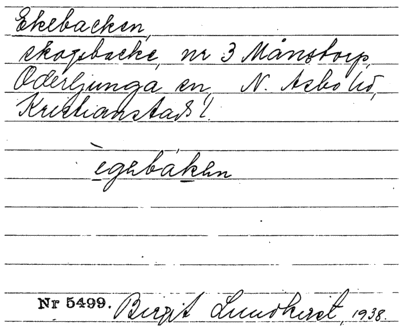 Ekebacken,
skogsbacke, nr 3 Månstorp,
Oderljunga sn, N. Åsbo hd,
Kristianstads l.
ègebàken
Nr 5499. Birgit Lundkvist, 1938.